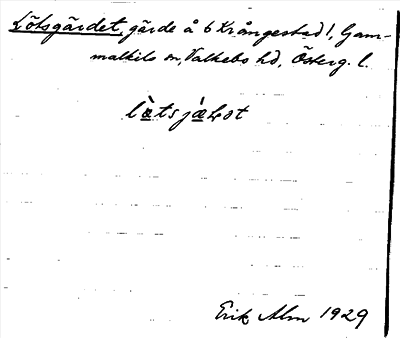 Lötsgärdet, gärde å 6 Krångestad 1, Gam-
malkils sn, Valkebo hd, Österg. l.
lœ̀tsjæ̀ɫət
Erik Alm 1929